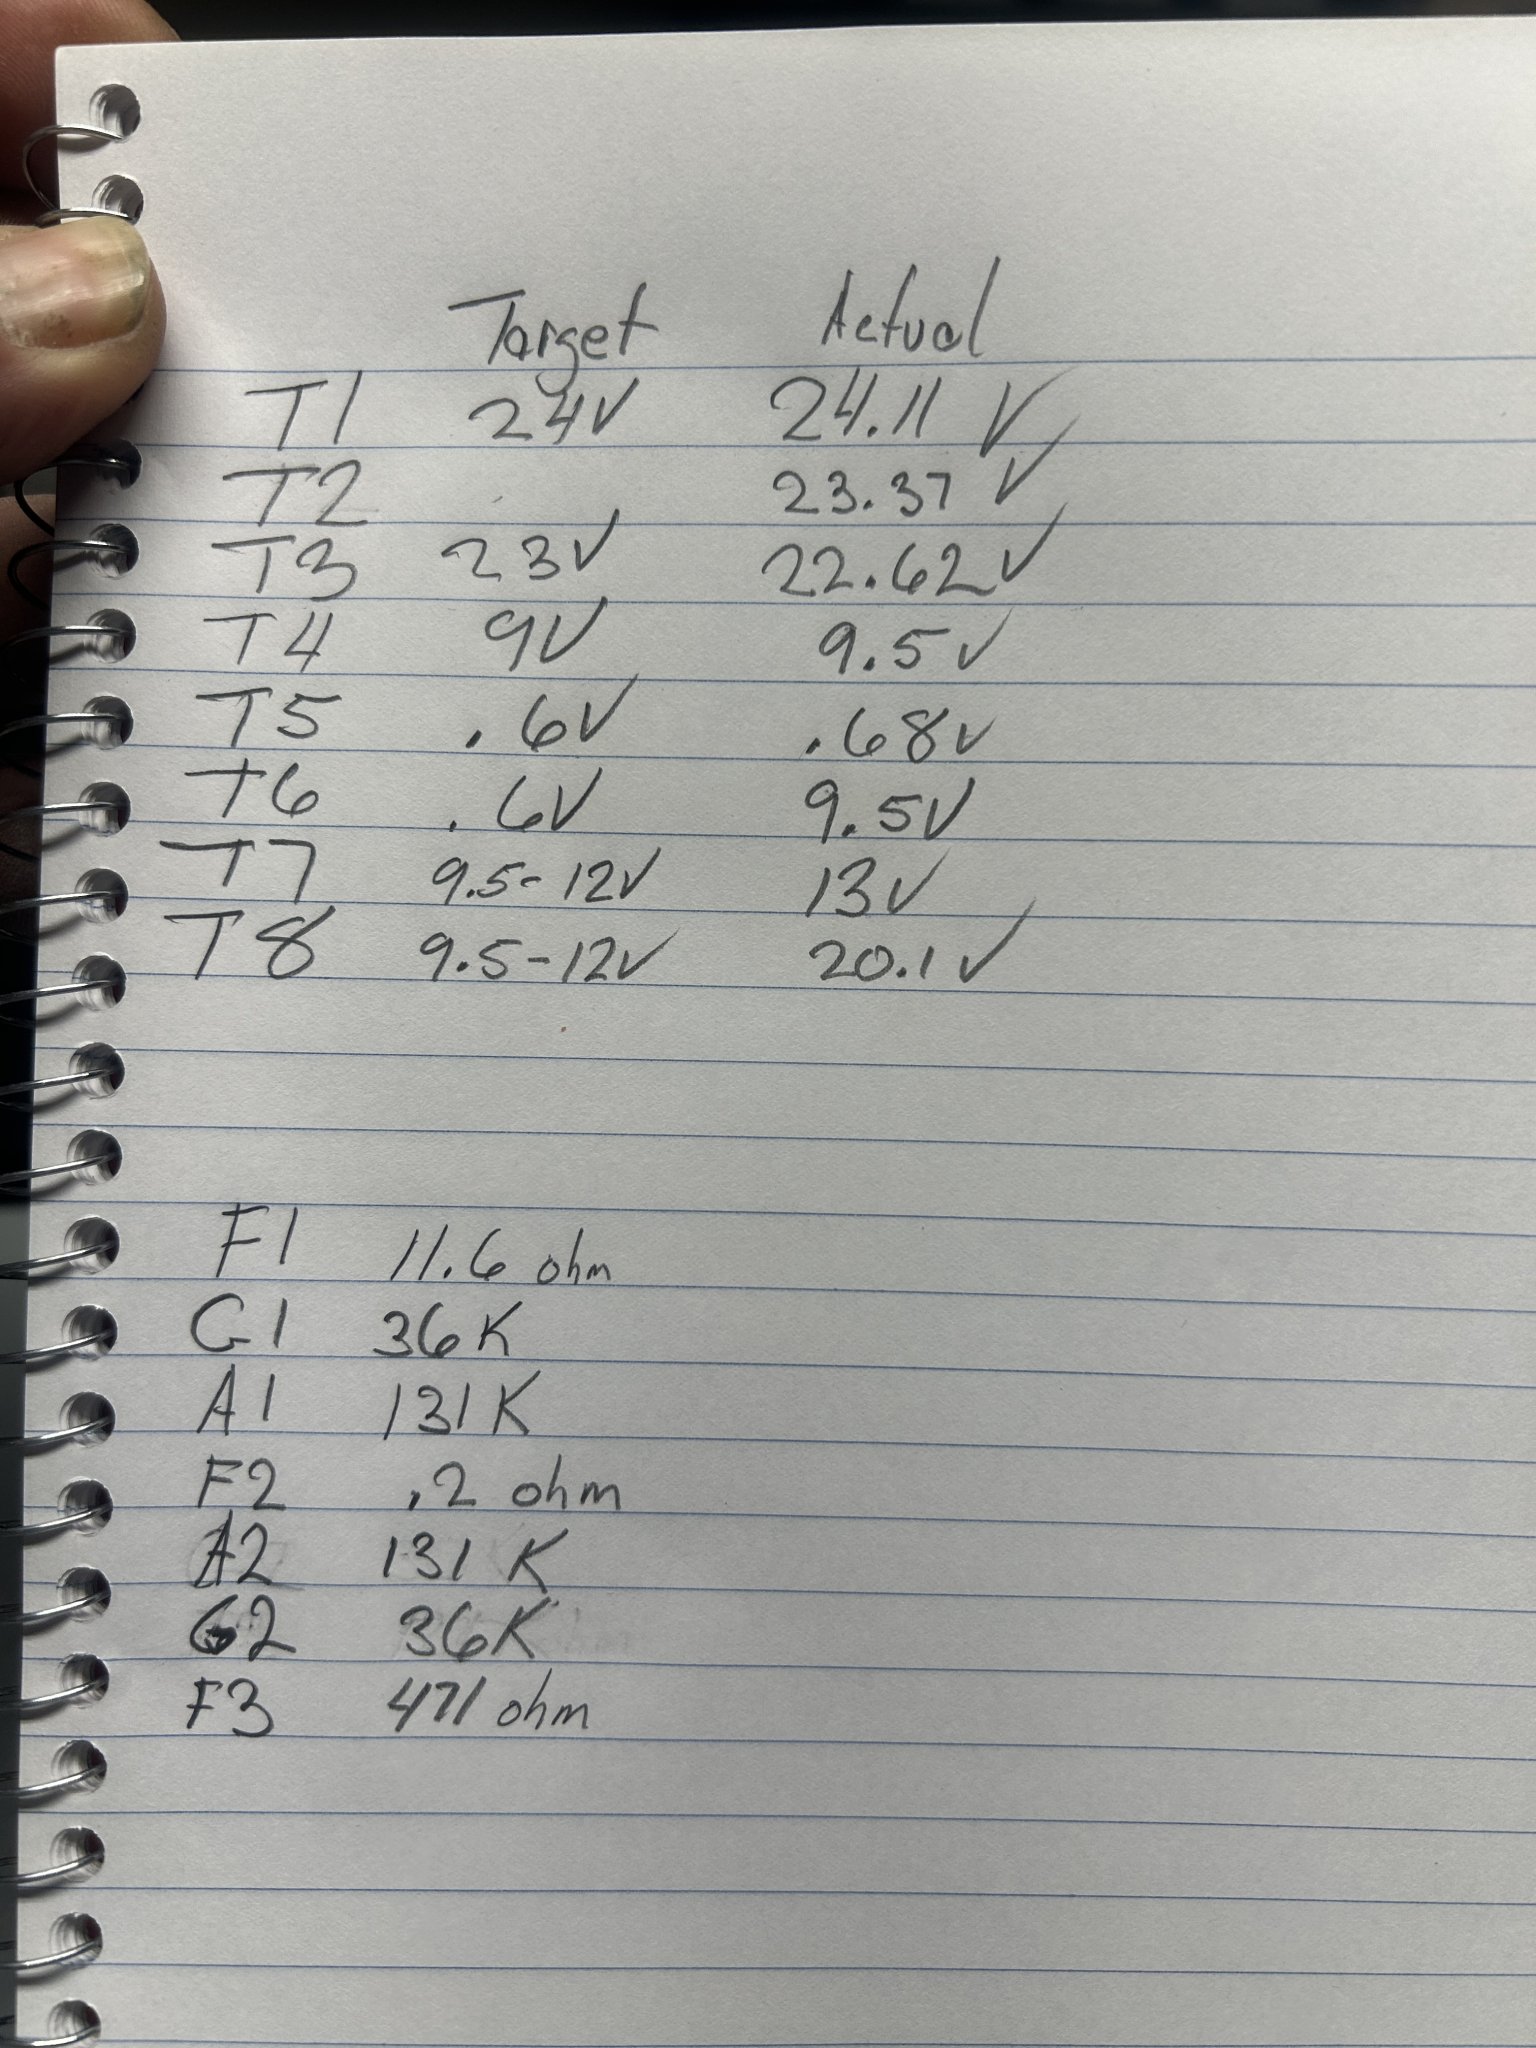 Target Actual
T1 24V 24.11 V
T2 23.37 V
T3 23V 22.62V
T4 9V 9.5V
T5 .6V .68V
T6 .6V 9.5V
T7 9.5-12V 13V
T8 9.5-12V 20.1V
F1 11.6 ohm
G1 36K
A1 131K
F2 .2 ohm
A2 131 K
G2 36K
F3 471 ohm